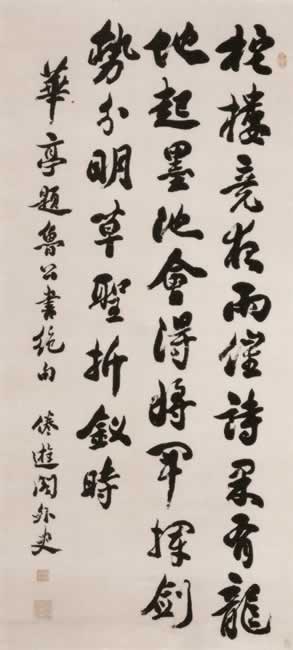 柁樓竟夜雨催詩果有龍
虵起墨池會得將軍揮劍
勢分明草聖折釵時
華亭題魯公書絶句 倦遊閣外史